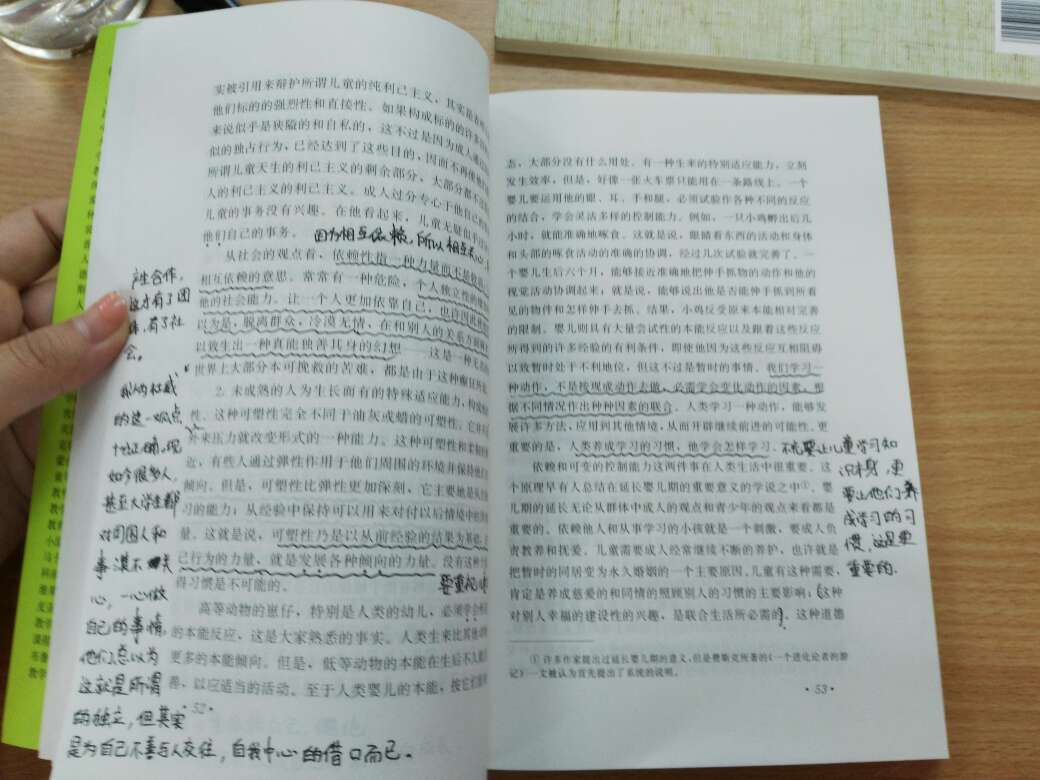 实被引用来辩护所谓儿童的纯利己主义,其实是表明
他们标的的强烈性和直接性。如果构成标的的许多
来说似乎是狭隘的和自私的,这不过是因为成人通过
似的独占行为,已经达到了这些目的,因而不再使他们
所谓儿童天生的利己主义的剩余部分,大部分都不过
人的利己主义的利己主义。成人过分专心于他自己的
儿童的事务没有兴趣。在他看起来,儿童无疑似乎
他们自己的事务。
因为相互依赖,所以相互关心,
从社会的观点看,依赖性指一种力量而不是软弱;
相互依赖的意思。常常有一种危险,个人独立性的增
他的社会能力。让一个人更加依靠自己,也许因此
以为是,脱离群众,冷漠无情,在和别人的关系方面
以致生出一种真能独善其身的幻想——这是一种无
世界上大部分本可挽救的苦难,都是由于这种癫狂所
2. 未成熟的人为生长而有的特殊适应能力,构成
性。这种可塑性完全不同于油灰或蜡的可塑性。它并
外来压力就改变形式的一种能力。这种可塑性和柔韧
近,有些人通过弹性作用于他们周围的环境并保持他们
倾向。但是,可塑性比弹性更加深刻,它主要地是从
习的能力;从经验中保持可以用来对付以后情境中的
量。这就是说,可塑性乃是以从前经验的结果为基础,
己行为的力量,就是发展各种倾向的力量。没有这种
得习惯是不可能的。
要重视
高等动物的崽仔,特别是人类的幼儿,必须学会
的本能反应,这是大家熟悉的事实。人类生来比其他
更多的本能倾向。但是,低等动物的本能在生后不久
善,以应适当的活动。至于人类婴儿的本能,按它们
·52·
产生合作,
这才有了团
体,有了社
会。
我认为杜威
的这一观点
十分正确,现
如今很多人,
甚至大学生都
对周围人和
事漠不关
心,一心做
自己的事情,
他们总以为
这就是所谓
的独立,但其实
是为自己不善与人交往,自我中心的借口而已。
态,大部分没有什么用处。有一种生来的特别适应能力,立刻
发生效率,但是,好像一张火车票只能用在一条路线上。一个
婴儿要运用他的眼、耳、手和腿,必须试验作各种不同的反应
的结合,学会灵活多样的控制能力。例如,一只小鸡孵出后几
小时,就能准确地啄食。这就是说,眼睛看东西的活动和身体
和头部的啄食活动的准确的协调,经过几次试验就完善了。一
个婴儿生后六个月,能够接近准确地把伸手抓物的动作和他的
视觉活动协调起来,就是说,能够说出他是否能伸手抓到所看
见的物件和怎样伸手去抓。结果,小鸡反受原来本能相对完善
的限制。婴儿则具有大量尝试性的本能反应以及跟着这些反应
所得到的许多经验的有利条件,即使他因为这些反应互相阻碍
以致暂时处于不利地位,但这不过是暂时的事情。我们学习一
种动作,不是按现成动作去做,必需学会变化动作的因素,根
据不同情况作出种种因素的联合。人类学习一种动作,能够发
展许多方法,应用到其他情境,从而开辟继续前进的可能性。更
重要的是,人类养成学习的习惯,他学会怎样学习。
依赖和可变的控制能力这两件事在人类生活中很重要。这
个原理早有人总结在延长婴儿期的重要意义的学说之中①。婴
儿期的延长无论从群体中成人的观点和青少年的观点来看都是
重要的。依赖他人和从事学习的小孩就是一个刺激,要成人负
责教养和抚爱。儿童需要成人经常继续不断的养护,也许就是
把暂时的同居变为永久婚姻的一个主要原因。儿童有这种需要,
肯定是养成慈爱的和同情的照顾别人的习惯的主要影响;这种
对别人幸福的建设性的兴趣,是联合生活所必需的。这种道德
不光要让儿童学习知
识本身,更
要让他们养
成学习的习
惯,这是更
重要的.
① 许多作家提出过延长婴儿期的意义,但是费斯克所著的《一个进化论者的游
记》一文被认为首先提出了系统的说明。
·53·